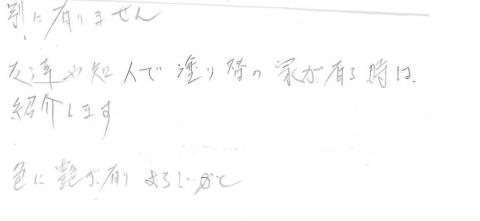 別に有りません
友達や知人で塗り替の家が有る時は、
紹介します
色に艶が有りよろしいかと